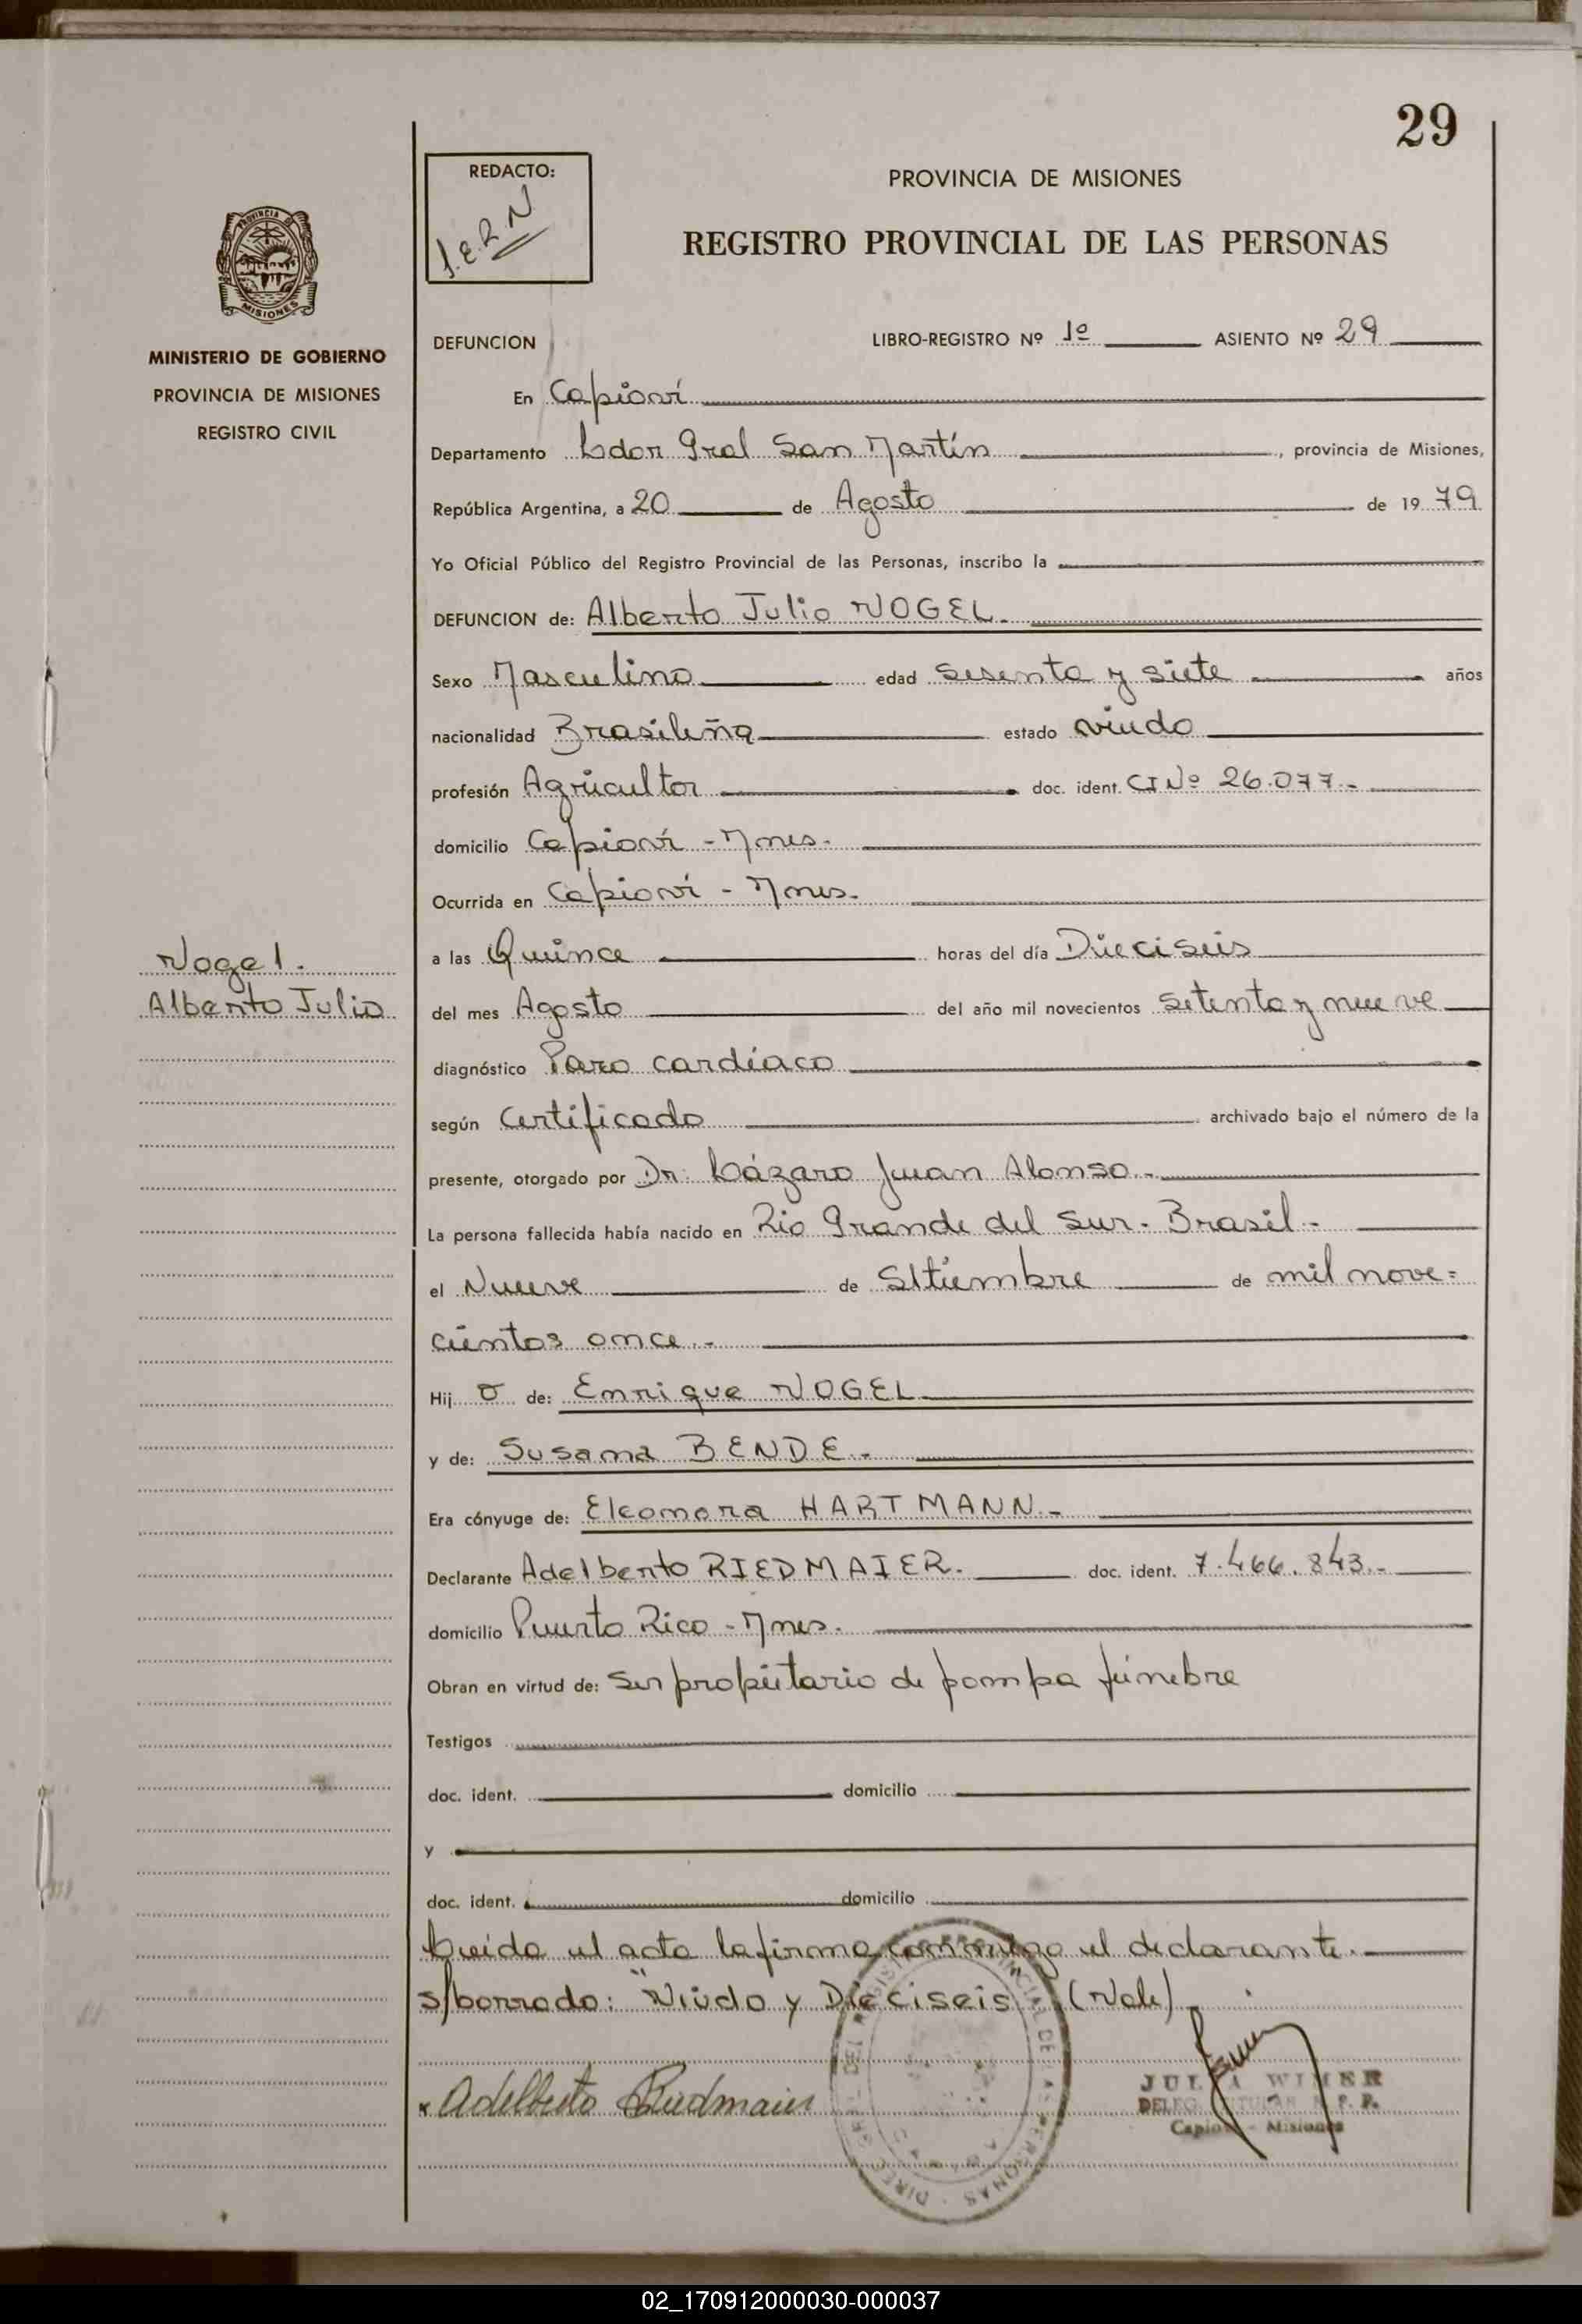 29
REDACTO:
J.E.R.N
PROVINCIA DE MISIONES
REGISTRO PROVINCIAL DE LAS PERSONAS
PROVINCIA DE
MISIONES
MINISTERIO DE GOBIERNO
PROVINCIA DE MISIONES
REGISTRO CIVIL
DEFUNCION LIBRO-REGISTRO Nº 1º ASIENTO Nº 29
En Capioví
Departamento Ldor Gral San Martín, provincia de Misiones,
República Argentina, a 20 de Agosto de 1979
Yo Oficial Público del Registro Provincial de las Personas, inscribo la
DEFUNCION de: Alberto Julio VOGEL.
Sexo Masculino edad sesenta y siete años
nacionalidad Brasileña estado viudo
profesión Agricultor doc. ident. CI Nº 26.077.-
domicilio Capioví - Mnes.
Ocurrida en Capioví - Mnes.
a las Quince horas del día Dieciseis
Vogel.
Alberto Julio
del mes Agosto del año mil novecientos setenta y nueve
diagnóstico Paro cardíaco
según Certificado archivado bajo el número de la
presente, otorgado por Dr. Lázaro Juan Alonso.-
La persona fallecida había nacido en Rio Grande del Sur. Brasil.-
el Nueve de Setiembre de mil nove=
cientos once.-
Hij o de: Enrique VOGEL
y de: Susana BENDE.-
Era cónyuge de: Eleonora HARTMANN.-
Declarante Adelberto RIEDMAIER. doc. ident. 7.466.843.-
domicilio Puerto Rico - Mnes.
Obran en virtud de: Ser propietario de pompa fúnebre
Testigos
doc. ident. domicilio
y
doc. ident. domicilio
Leída el acta la firma conmigo el declarante.
s/borrado: "Viudo y Dieciseis" (Vale)
Adelberto Riedmaier
JULIA WIMER
DELEG. TITULAR R. P. P.
Capioví - Misiones
02_170912000030-000037